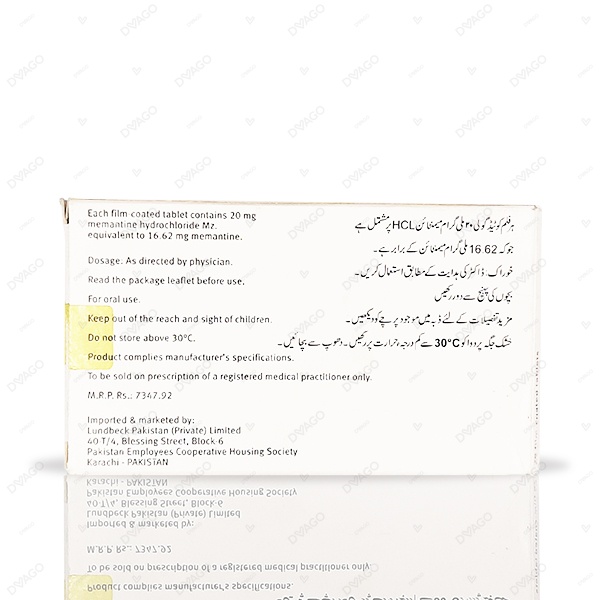 Each film-coated tablet contains 20 mg
memantine hydrochloride Mz.
equivalent to 16.62 mg memantine.
Dosage: As directed by physician.
Read the package leaflet before use.
For oral use.
Keep out of the reach and sight of children.
Do not store above 30°C.
Product complies manufacturer's specifications.
To be sold on prescription of a registered medical practitioner only.
M.R.P. Rs.: 7347.92
Imported & marketed by:
Lundbeck Pakistan (Private) Limited
40 T/4, Blessing Street, Block-6
Pakistan Employees Cooperative Housing Society
Karachi - PAKISTAN
ہر فلم کوٹیڈ گولی ۲۰ ملی گرام میمنٹائن HCL پر مشتمل ہے
جو کہ 16.62 ملی گرام میمنٹائن کے برابر ہے۔
خوراک: ڈاکٹر کی ہدایت کے مطابق استعمال کریں۔
بچوں کی پہنچ سے دور رکھیں
مزید تفصیلات کے لئے ڈبہ میں موجود پرچے کو دیکھیں۔
خشک جگہ پر دوا کو 30°C سے کم درجہ حرارت پر رکھیں۔ دھوپ سے بچائیں۔
DVAGO